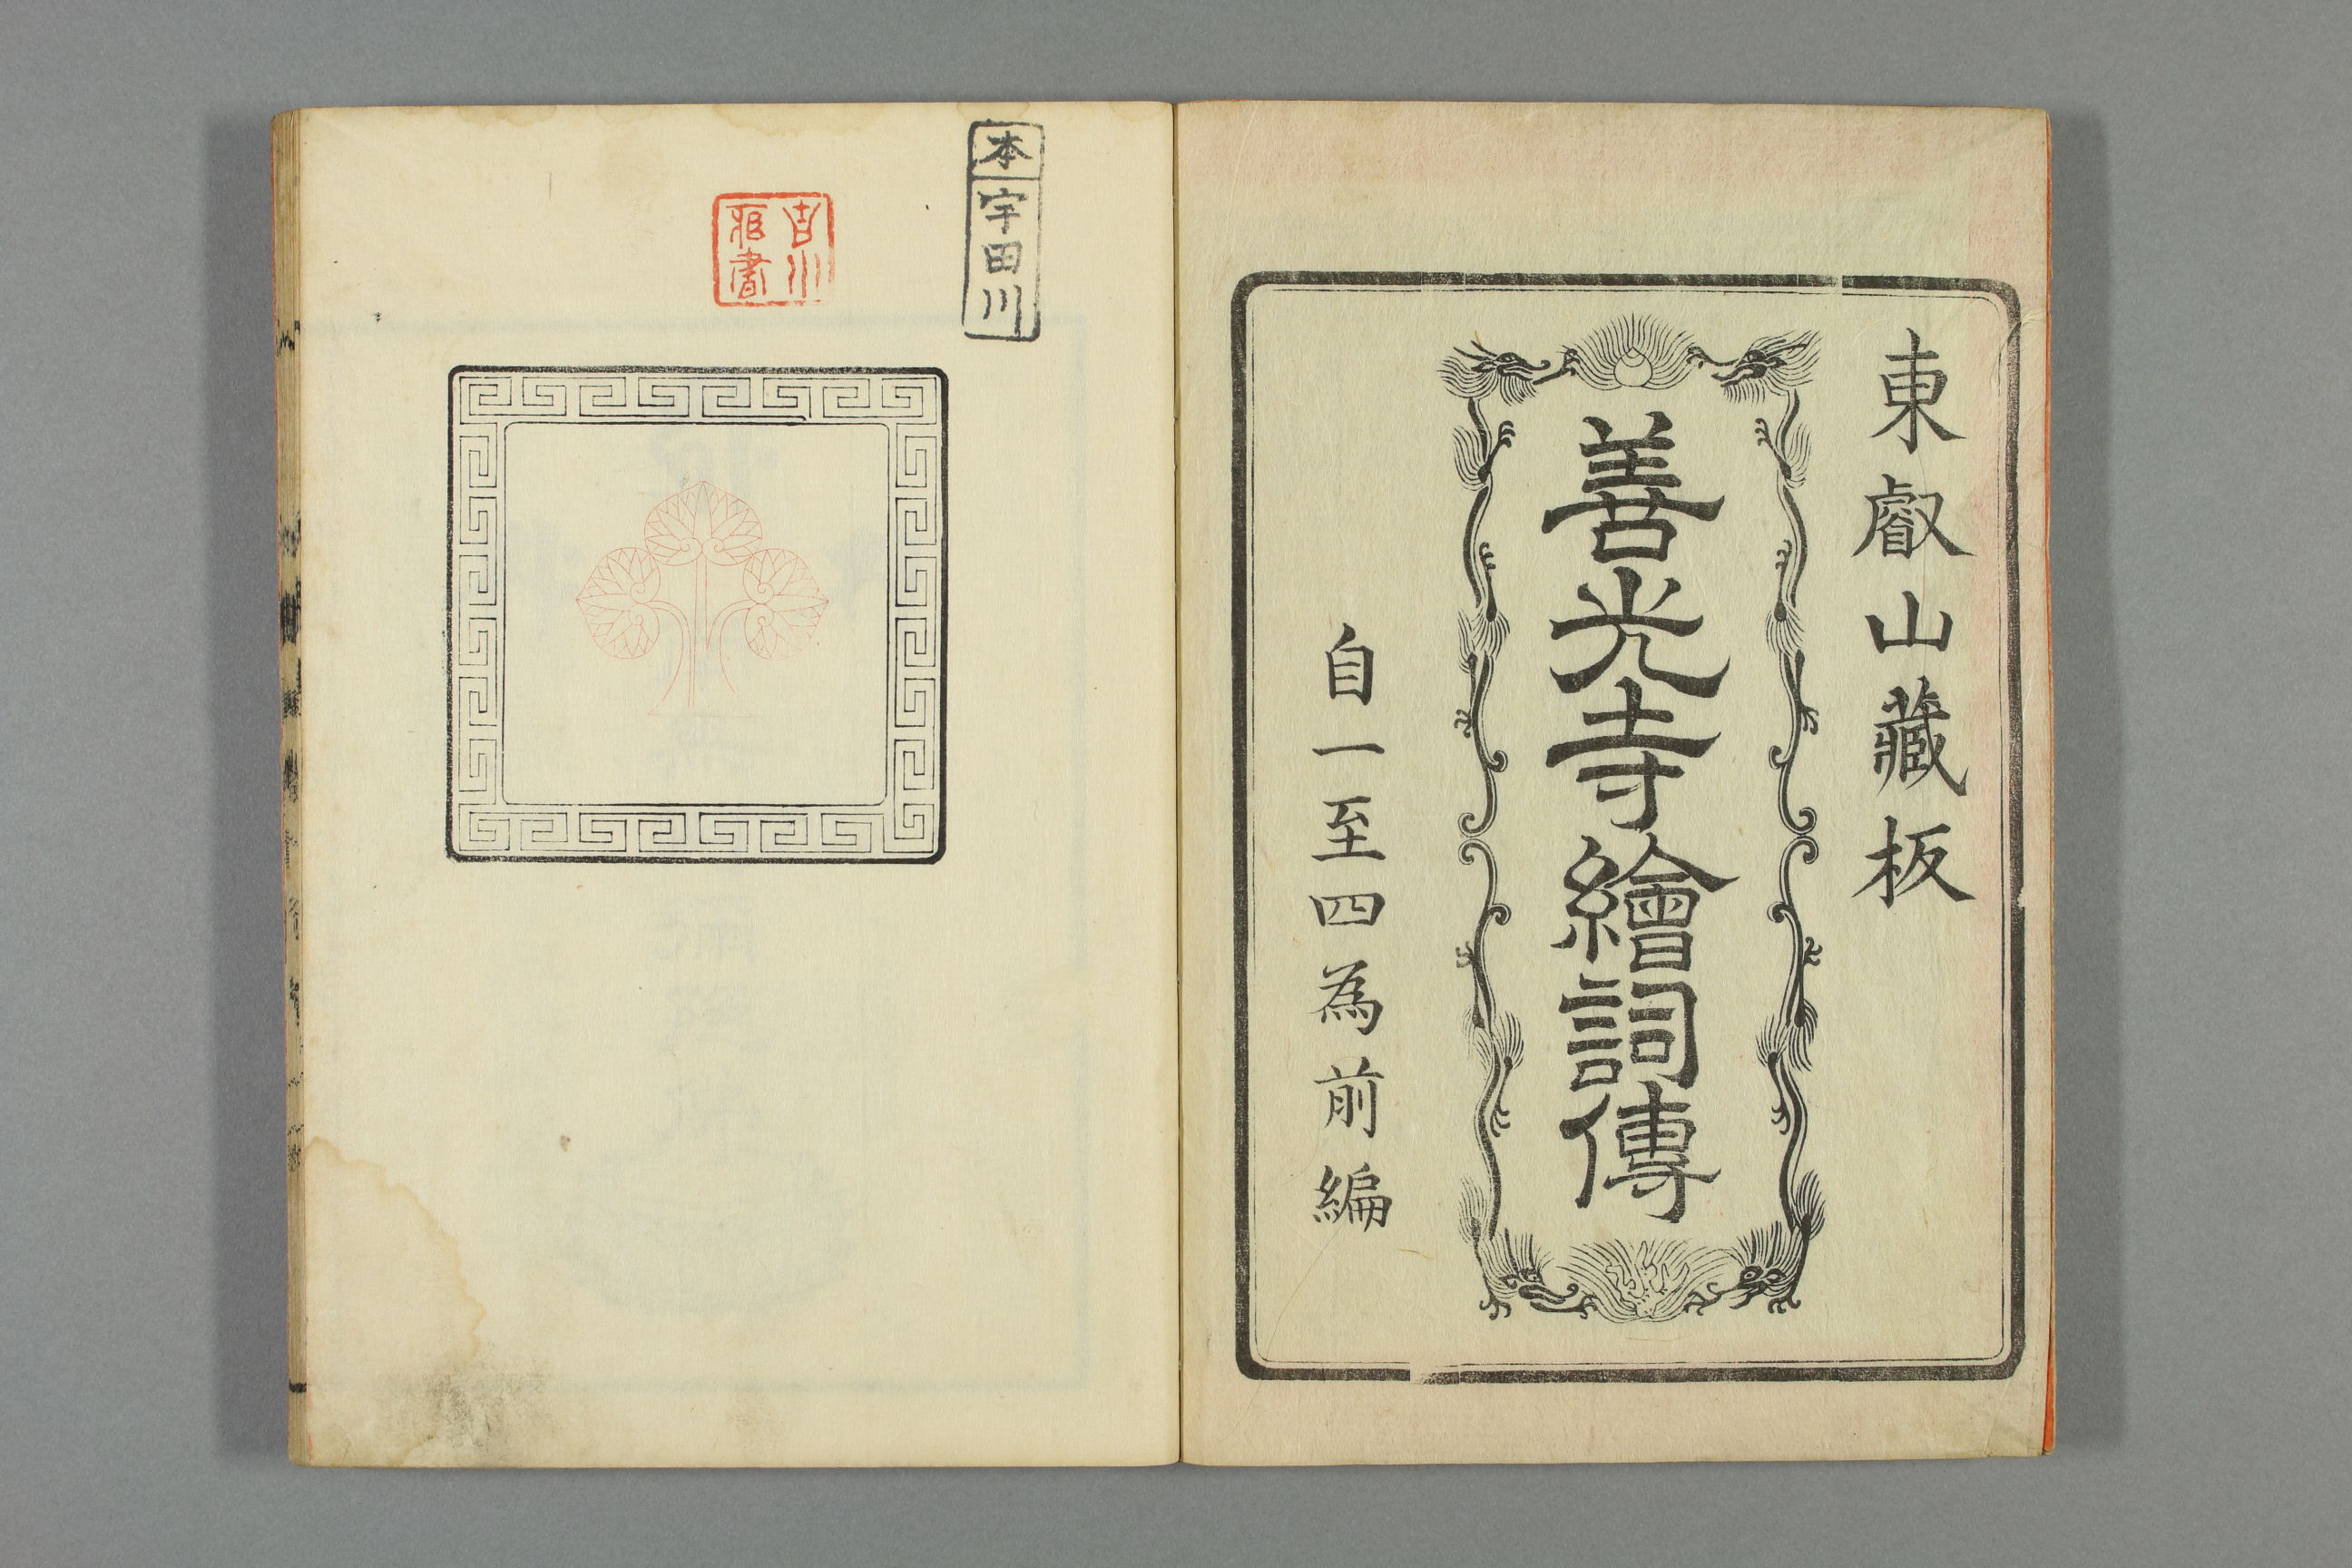 東叡山藏板
善光寺繪詞傳
自一至四為前編
本宇田川